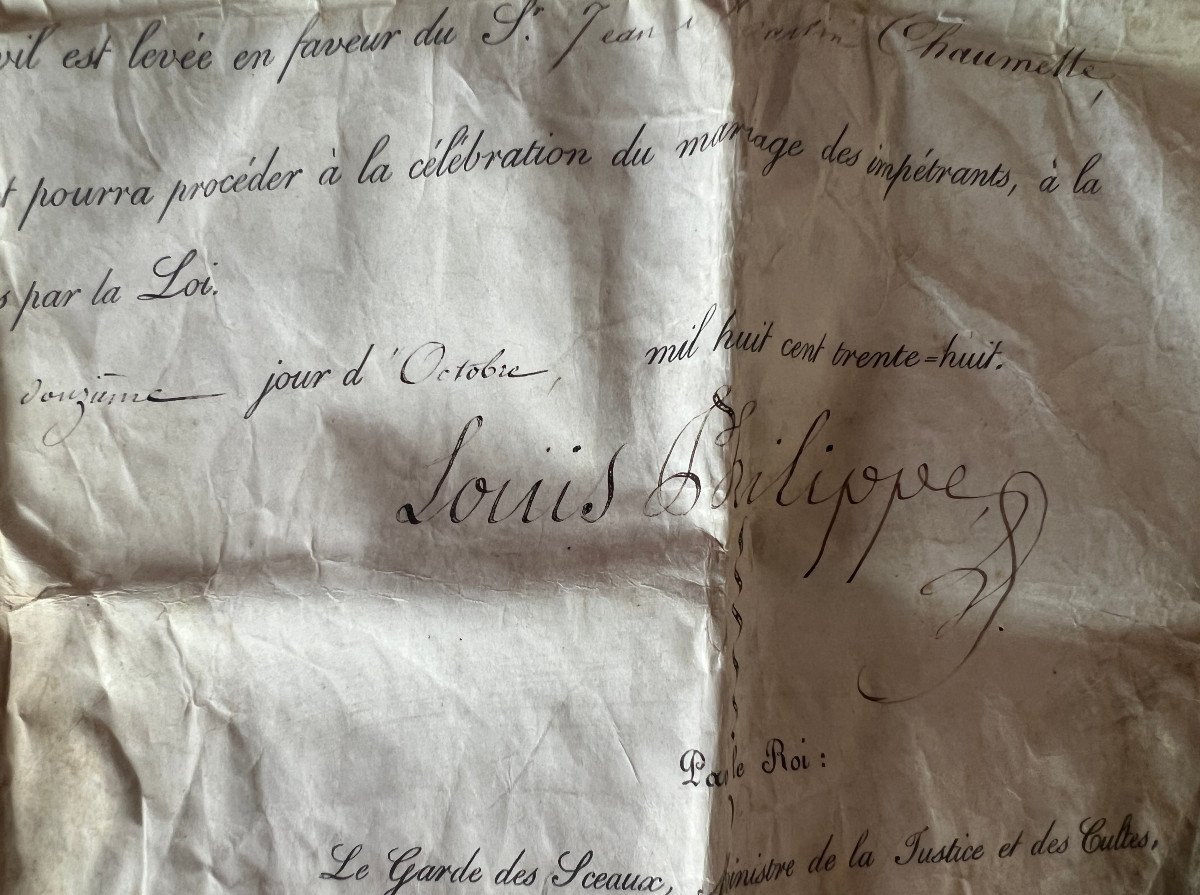 est levée en faveur du Sr. Jean Chaumette,
pourra procéder à la célébration du mariage des impétrants, à la
par la Loi.
jour d'Octobre, mil huit cent trente=huit.
Louis Philippe
Par le Roi :
Le Garde des Sceaux, Ministre de la Justice et des Cultes,